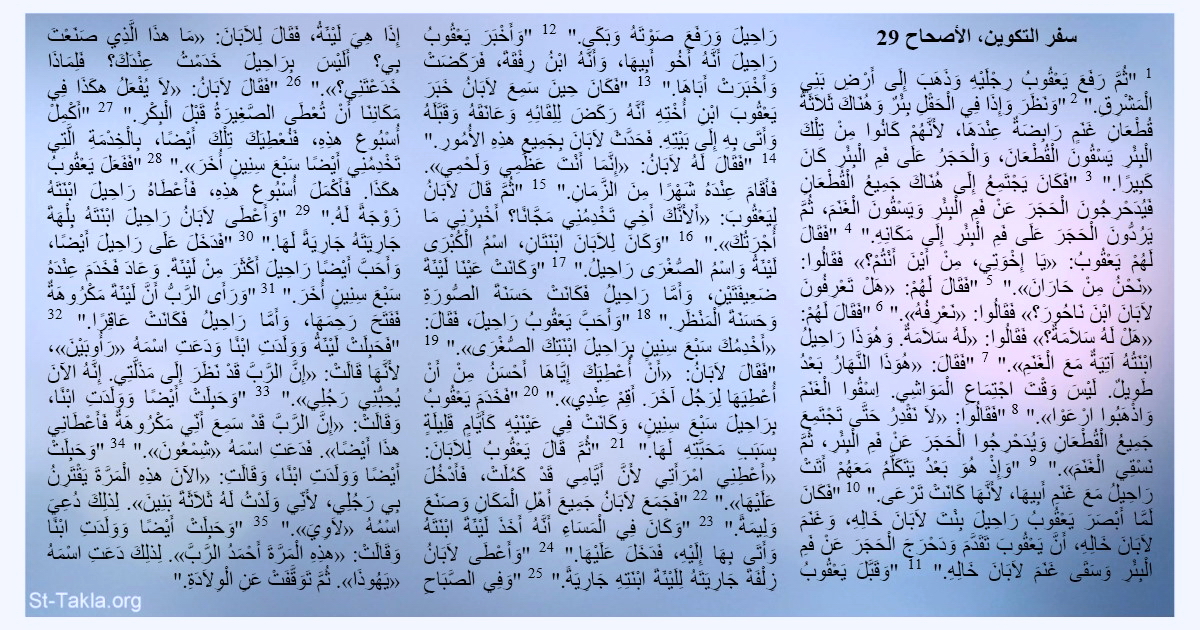 سفر التكوين، الأصحاح 29
1 "ثُمَّ رَفَعَ يَعْقُوبُ رِجْلَيْهِ وَذَهَبَ إِلَى أَرْضِ بَنِي
الْمَشْرِقِ." 2 "وَنَظَرَ وَإِذَا فِي الْحَقْلِ بِئْرٌ وَهُنَاكَ ثَلاَثَةُ
قُطْعَانِ غَنَمٍ رَابِضَةٌ عِنْدَهَا، لأَنَّهُمْ كَانُوا مِنْ تِلْكَ
الْبِئْرِ يَسْقُونَ الْقُطْعَانَ، وَالْحَجَرُ عَلَى فَمِ الْبِئْرِ كَانَ
كَبِيرًا." 3 "فَكَانَ يَجْتَمِعُ إِلَى هُنَاكَ جَمِيعُ الْقُطْعَانِ
فَيُدَحْرِجُونَ الْحَجَرَ عَنْ فَمِ الْبِئْرِ وَيَسْقُونَ الْغَنَمَ، ثُمَّ
يَرُدُّونَ الْحَجَرَ عَلَى فَمِ الْبِئْرِ إِلَى مَكَانِهِ." 4 "فَقَالَ
لَهُمْ يَعْقُوبُ: «يَا إِخْوَتِي، مِنْ أَيْنَ أَنْتُمْ؟» فَقَالُوا:
«نَحْنُ مِنْ حَارَانَ»." 5 "فَقَالَ لَهُمْ: «هَلْ تَعْرِفُونَ
لاَبَانَ ابْنَ نَاحُورَ؟» فَقَالُوا: «نَعْرِفُهُ»." 6 "فَقَالَ لَهُمْ:
«هَلْ لَهُ سَلاَمَةٌ؟» فَقَالُوا: «لَهُ سَلاَمَةٌ. وَهُوَذَا رَاحِيلُ
ابْنَتُهُ آتِيَةٌ مَعَ الْغَنَمِ»." 7 "فَقَالَ: «هُوَذَا النَّهَارُ بَعْدُ
طَوِيلٌ. لَيْسَ وَقْتَ اجْتِمَاعِ الْمَوَاشِي. اِسْقُوا الْغَنَمَ
وَاذْهَبُوا ارْعَوْا»." 8 "فَقَالُوا: «لاَ نَقْدِرُ حَتَّى تَجْتَمِعَ
جَمِيعُ الْقُطْعَانِ وَيُدَحْرِجُوا الْحَجَرَ عَنْ فَمِ الْبِئْرِ، ثُمَّ
نَسْقِي الْغَنَمَ»." 9 "وَإِذْ هُوَ بَعْدُ يَتَكَلَّمُ مَعَهُمْ أَتَتْ
رَاحِيلُ مَعَ غَنَمِ أَبِيهَا، لأَنَّهَا كَانَتْ تَرْعَى." 10 "فَكَانَ
لَمَّا أَبْصَرَ يَعْقُوبُ رَاحِيلَ بِنْتَ لاَبَانَ خَالِهِ، وَغَنَمَ
لاَبَانَ خَالِهِ، أَنَّ يَعْقُوبَ تَقَدَّمَ وَدَحْرَجَ الْحَجَرَ عَنْ فَمِ
الْبِئْرِ وَسَقَى غَنَمَ لاَبَانَ خَالِهِ." 11 "وَقَبَّلَ يَعْقُوبُ
رَاحِيلَ وَرَفَعَ صَوْتَهُ وَبَكَى." 12 "وَأَخْبَرَ يَعْقُوبُ
رَاحِيلَ أَنَّهُ أَخُو أَبِيهَا، وَأَنَّهُ ابْنُ رِفْقَةَ، فَرَكَضَتْ
وَأَخْبَرَتْ أَبَاهَا." 13 "فَكَانَ حِينَ سَمِعَ لاَبَانُ خَبَرَ
يَعْقُوبَ ابْنِ أُخْتِهِ أَنَّهُ رَكَضَ لِلِقَائِهِ وَعَانَقَهُ وَقَبَّلَهُ
وَأَتَى بِهِ إِلَى بَيْتِهِ. فَحَدَّثَ لاَبَانَ بِجَمِيعِ هذِهِ الأُمُورِ."
14 "فَقَالَ لَهُ لاَبَانُ: «إِنَّمَا أَنْتَ عَظْمِي وَلَحْمِي».
فَأَقَامَ عِنْدَهُ شَهْرًا مِنَ الزَّمَانِ." 15 "ثُمَّ قَالَ لاَبَانُ
لِيَعْقُوبَ: «أَلأَنَّكَ أَخِي تَخْدِمُنِي مَجَّانًا؟ أَخْبِرْنِي مَا
أُجْرَتُكَ»." 16 "وَكَانَ لِلاَبَانَ ابْنَتَانِ، اسْمُ الْكُبْرَى
لَيْئَةُ وَاسْمُ الصُّغْرَى رَاحِيلُ." 17 "وَكَانَتْ عَيْنَا لَيْئَةَ
ضَعِيفَتَيْنِ، وَأَمَّا رَاحِيلُ فَكَانَتْ حَسَنَةَ الصُّورَةِ
وَحَسَنَةَ الْمَنْظَرِ." 18 "وَأَحَبَّ يَعْقُوبُ رَاحِيلَ، فَقَالَ:
«أَخْدِمُكَ سَبْعَ سِنِينٍ بِرَاحِيلَ ابْنَتِكَ الصُّغْرَى»." 19
"فَقَالَ لاَبَانُ: «أَنْ أُعْطِيَكَ إِيَّاهَا أَحْسَنُ مِنْ أَنْ
أُعْطِيَهَا لِرَجُل آخَرَ. أَقِمْ عِنْدِي»." 20 "فَخَدَمَ يَعْقُوبُ
بِرَاحِيلَ سَبْعَ سِنِينٍ، وَكَانَتْ فِي عَيْنَيْهِ كَأَيَّامٍ قَلِيلَةٍ
بِسَبَبِ مَحَبَّتِهِ لَهَا." 21 "ثُمَّ قَالَ يَعْقُوبُ لِلاَبَانَ:
«أَعْطِنِي امْرَأَتِي لأَنَّ أَيَّامِي قَدْ كَمُلَتْ، فَأَدْخُلَ
عَلَيْهَا»." 22 "فَجَمَعَ لاَبَانُ جَمِيعَ أَهْلِ الْمَكَانِ وَصَنَعَ
وَلِيمَةً." 23 "وَكَانَ فِي الْمَسَاءِ أَنَّهُ أَخَذَ لَيْئَةَ ابْنَتَهُ
وَأَتَى بِهَا إِلَيْهِ، فَدَخَلَ عَلَيْهَا." 24 "وَأَعْطَى لاَبَانُ
زِلْفَةَ جَارِيَتَهُ لِلَيْئَةَ ابْنَتِهِ جَارِيَةً." 25 "وَفِي الصَّبَاحِ
إِذَا هِيَ لَيْئَةُ، فَقَالَ لِلاَبَانَ: «مَا هذَا الَّذِي صَنَعْتَ
بِي؟ أَلَيْسَ بِرَاحِيلَ خَدَمْتُ عِنْدَكَ؟ فَلِمَاذَا
خَدَعْتَنِي؟»." 26 "فَقَالَ لاَبَانُ: «لاَ يُفْعَلُ هكَذَا فِي
مَكَانِنَا أَنْ تُعْطَى الصَّغِيرَةُ قَبْلَ الْبِكْرِ." 27 "أَكْمِلْ
أُسْبُوعَ هذِهِ، فَنُعْطِيَكَ تِلْكَ أَيْضًا، بِالْخِدْمَةِ الَّتِي
تَخْدِمُنِي أَيْضًا سَبْعَ سِنِينٍ أُخَرَ»." 28 "فَفَعَلَ يَعْقُوبُ
هكَذَا. فَأَكْمَلَ أُسْبُوعَ هذِهِ، فَأَعْطَاهُ رَاحِيلَ ابْنَتَهُ
زَوْجَةً لَهُ." 29 "وَأَعْطَى لاَبَانُ رَاحِيلَ ابْنَتَهُ بِلْهَةَ
جَارِيَتَهُ جَارِيَةً لَهَا." 30 "فَدَخَلَ عَلَى رَاحِيلَ أَيْضًا،
وَأَحَبَّ أَيْضًا رَاحِيلَ أَكْثَرَ مِنْ لَيْئَةَ. وَعَادَ فَخَدَمَ عِنْدَهُ
سَبْعَ سِنِينٍ أُخَرَ." 31 "وَرَأَى الرَّبُّ أَنَّ لَيْئَةَ مَكْرُوهَةٌ
فَفَتَحَ رَحِمَهَا، وَأَمَّا رَاحِيلُ فَكَانَتْ عَاقِرًا." 32
"فَحَبِلَتْ لَيْئَةُ وَوَلَدَتِ ابْنًا وَدَعَتِ اسْمَهُ «رَأُوبَيْنَ»،
لأَنَّهَا قَالَتْ: «إِنَّ الرَّبَّ قَدْ نَظَرَ إِلَى مَذَلَّتِي. إِنَّهُ الآنَ
يُحِبُّنِي رَجُلِي»." 33 "وَحَبِلَتْ أَيْضًا وَوَلَدَتِ ابْنًا،
وَقَالَتْ: «إِنَّ الرَّبَّ قَدْ سَمِعَ أَنِّي مَكْرُوهَةٌ فَأَعْطَانِي
هذَا أَيْضًا». فَدَعَتِ اسْمَهُ «شِمْعُونَ»." 34 "وَحَبِلَتْ
أَيْضًا وَوَلَدَتِ ابْنًا، وَقَالَتِ: «الآنَ هذِهِ الْمَرَّةَ يَقْتَرِنُ
بِي رَجُلِي، لأَنِّي وَلَدْتُ لَهُ ثَلاَثَةَ بَنِينَ». لِذلِكَ دُعِيَ
اسْمُهُ «لاَوِيَ»." 35 "وَحَبِلَتْ أَيْضًا وَوَلَدَتِ ابْنًا
وَقَالَتْ: «هذِهِ الْمَرَّةَ أَحْمَدُ الرَّبَّ». لِذلِكَ دَعَتِ اسْمَهُ
«يَهُوذَا». ثُمَّ تَوَقَّفَتْ عَنِ الْوِلاَدَةِ."
St-Takla.org